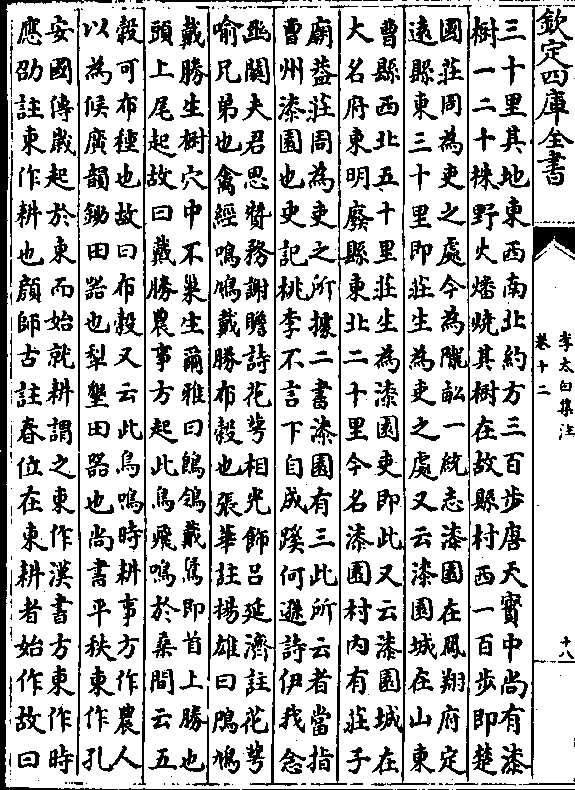 欽定四庫全書
李太白集注
卷十二
十八
三十里其地東西南北約方三百步唐天寶中尚有漆
樹一二十株野火燔燒其樹在故縣村西一百步即楚
國莊周為吏之處今為隴畝一統志漆園在鳳翔府定
遠縣東三十里即莊生為吏之處又云漆園城在山東
曹縣西北五十里莊生為漆園吏即此又云漆園城在
大名府東明廢縣東北二十里今名漆園村内有莊子
廟葢莊周為吏之所據二書漆園有三此所云者當指
曹州漆園也史記桃李不言下自成蹊何遜詩伊我念
幽關夫君思贊務謝瞻詩花萼相光飾吕延濟註花萼
喻兄弟也禽經鳴鳩戴勝布穀也張華註揚雄曰鳲鳩
戴勝生樹穴中不巢生爾雅曰戴鵀即首上勝也
頭上尾起故曰戴勝農事方起此鳥飛鳴於桑間云五
穀可布種也故曰布穀又云此鳥鳴時耕事方作農人
以為候廣韻鋤田器也犁墾田器也尚書平秩東作孔
安國傳歲起於東而始就耕謂之東作漢書方東作時
應劭註東作耕也顔師古註春位在東耕者始作故曰